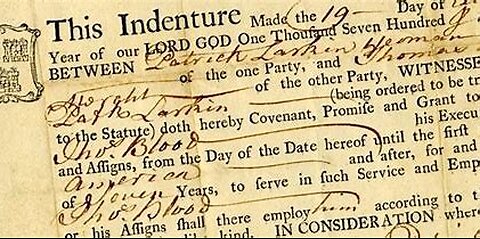 This Indenture Made the 19 Day of
Year of our LORD GOD One Thousand Seven Hundred
BETWEEN Patrick Larkin Yeoman
of the one Party, and Thomas
of the other Party, WITNESSE
Patk Larkin (being ordered to be tr
to the Statute) doth hereby Covenant, Promise and Grant to
Thos. Blood his Execu
and Assigns, from the Day of the Date hereof until the first
and after, for and
america
of Seven Years, to serve in such Service and Emp
Thos. Blood
or his Assigns shall there employ him according to t
like kind. IN CONSIDERATION where